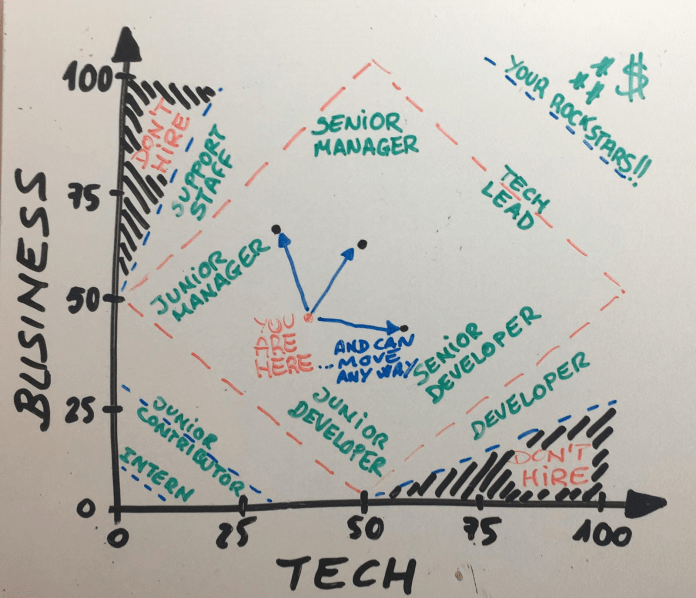 100
75
50
25
0
BUSINESS
0
25
50
75
100
TECH
DON'T
HIRE
SUPPORT
STAFF
SENIOR
MANAGER
YOUR ROCKSTARS!!
***$
TECH
LEAD
JUNIOR
MANAGER
YOU
ARE
HERE
...AND CAN
MOVE
ANY WAY
SENIOR
DEVELOPER
DEVELOPER
JUNIOR
DEVELOPER
JUNIOR
CONTRIBUTOR
INTERN
DON'T
HIRE